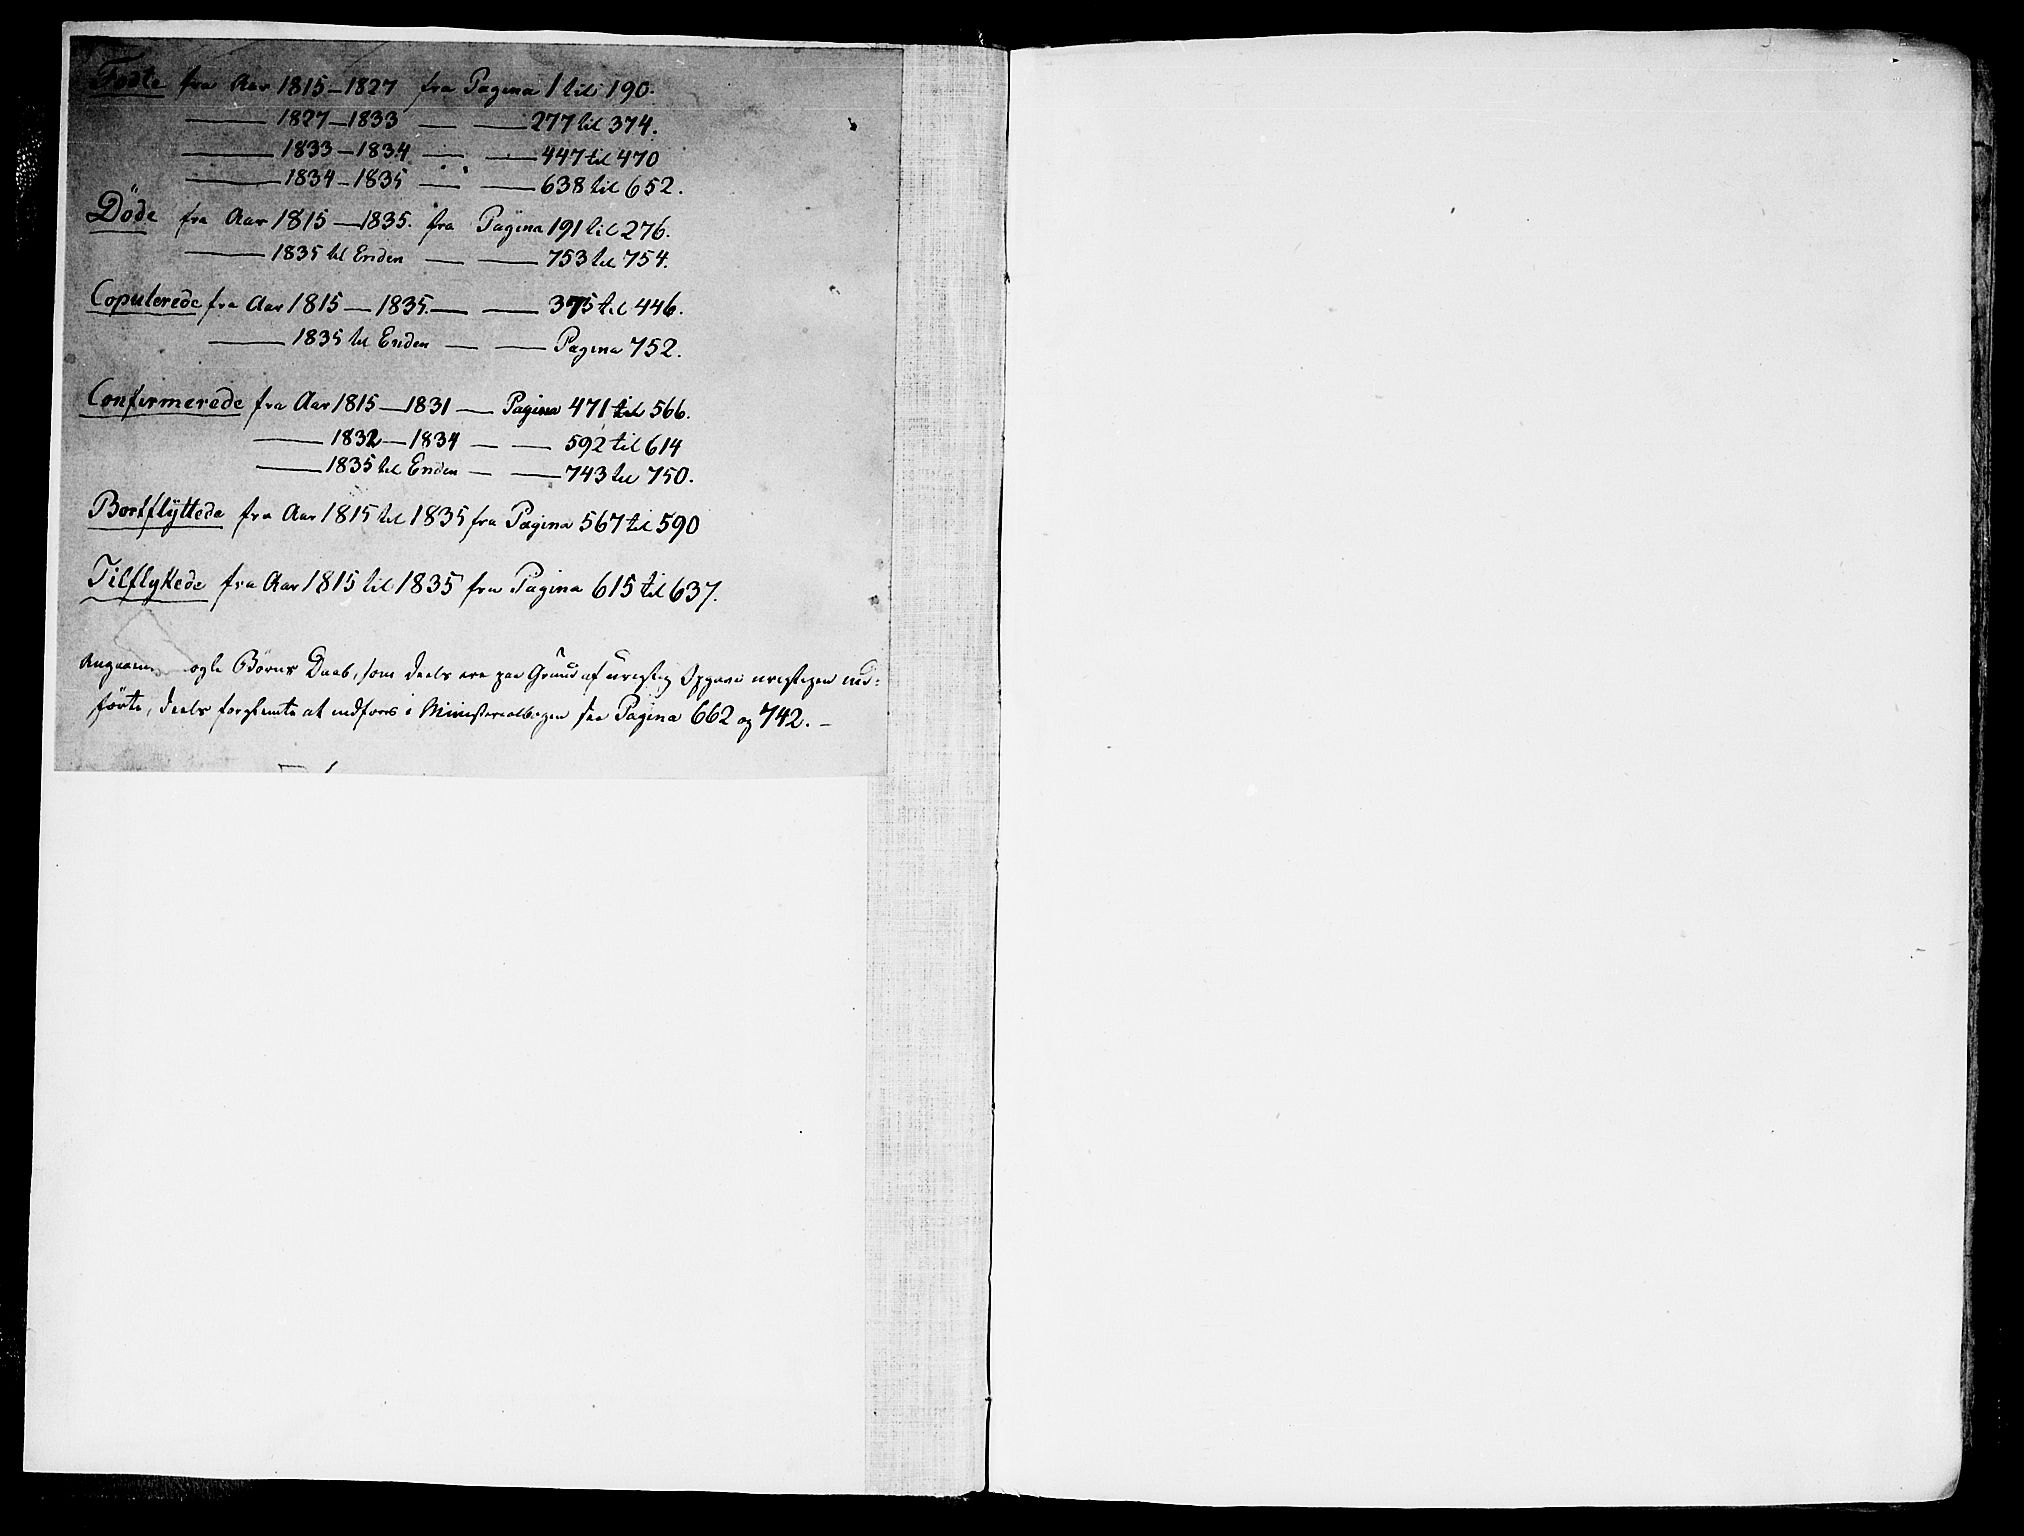 Fødte fra Aar 1815–1827 fra Pagina 1 til 190.
——— 1827–1833 — —— 277 til 374.
——— 1833–1834 — —— 447 til 470
——— 1834–1835 — —— 638 til 652.
Döde fra Aar 1815–1835. fra Pagina 191 til 276.
——— 1835 til Enden — —— 753 til 754.
Copulerede fra Aar 1815 — 1835. — —— 375 til 446.
——— 1835 til Enden — —— Pagina 752.
Confirmerede fra Aar 1815–1831 — Pagina 471 til 566.
——— 1832–1834 — —— 592 til 614
——— 1835 til Enden — —— 743 til 750.
Bortflÿttede fra Aar 1815 til 1835 fra Pagina 567 til 590
Tilflyttede fra Aar 1815 til 1835 fra Pagina 615 til 637.
Angaaen ogle Börns Daab, som deels ere paa Grund af urigtig Opgave urigtigen ind-
förte, deels forglemte at indføres i Ministerialbogen see Pagina 662 og 742. –